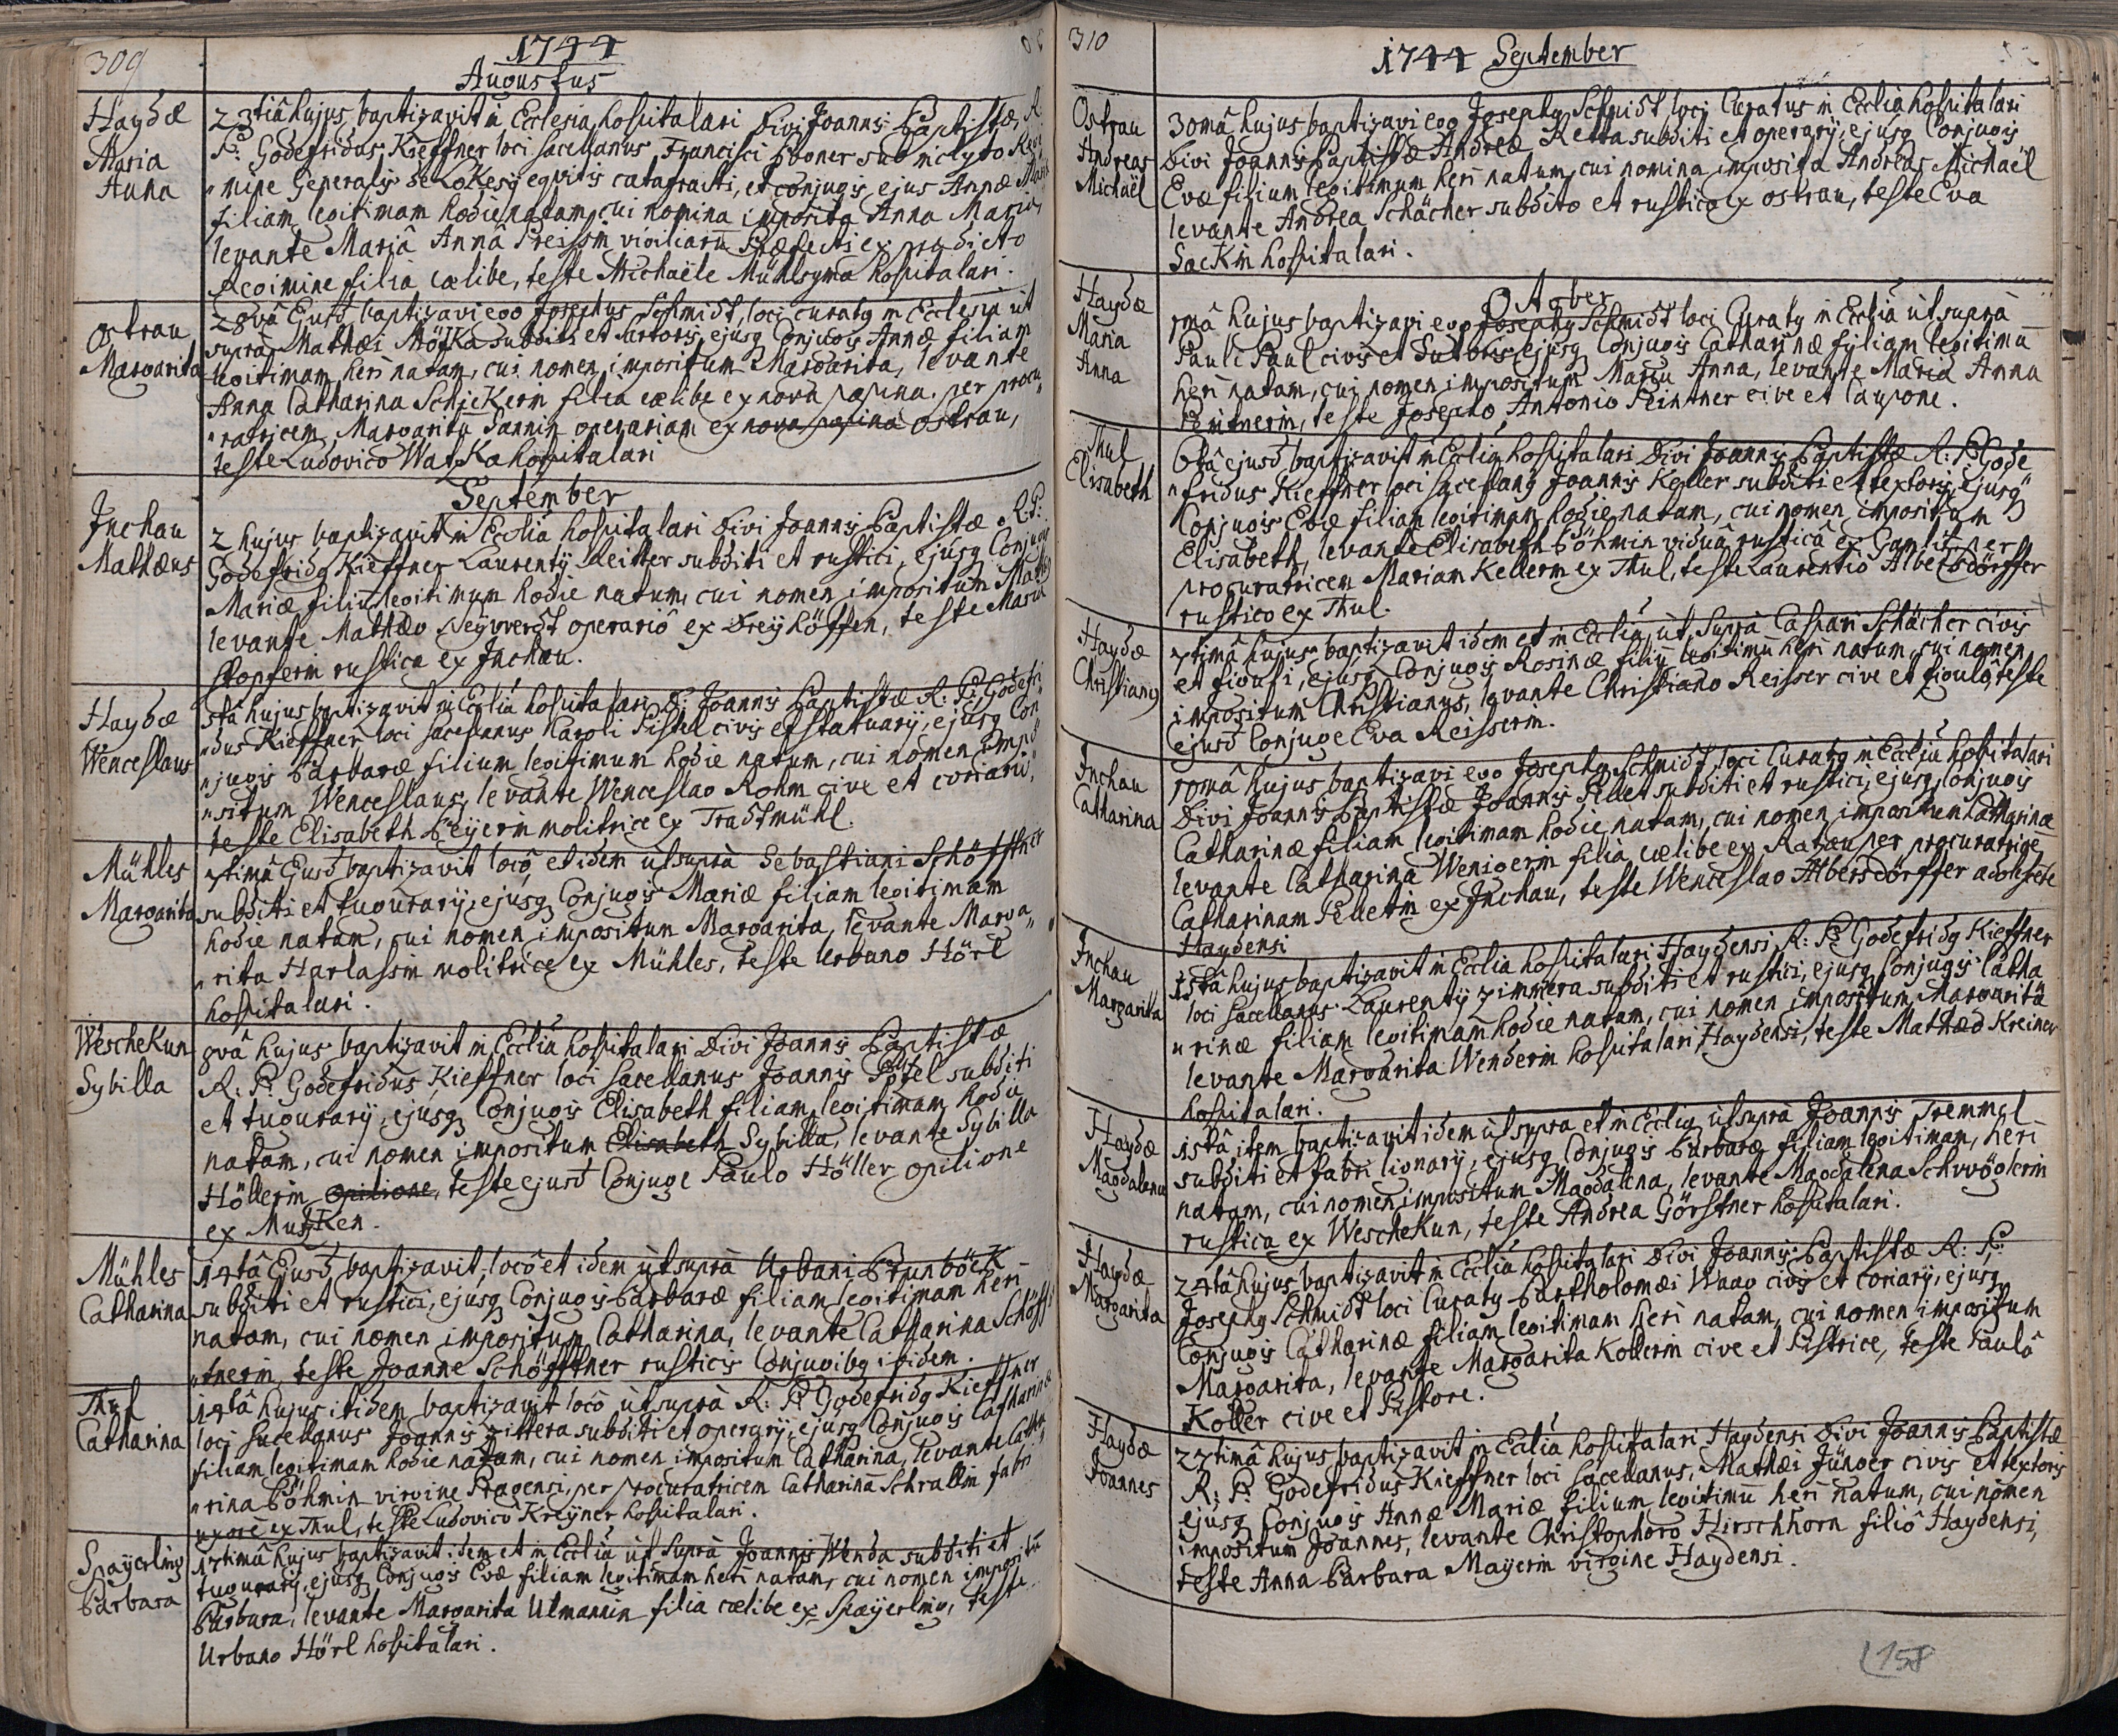 309
1744
Augustus
Haydæ
Maria
Anna
23tiâ hujus baptizavit in Ecclesia hospitalari Divi Joannis Baptistæ, R:
P: Godefridus Kieffner loci sacellanus Francisci Boner sub inclyto Regi
mine Generalis de Lokesÿ equitis cataphracti, et conjugis ejus Annæ Mariæ
filiam legitimam hodie natam, cui nomina imposita Anna Maria,
levante Mariâ Annâ Preissin vigiliarū Præfecti ex prædicto
Regimine filia cælibe, teste Michaële Mühlsyma hospitalari.
Ostrau
Margarita
28vâ Ejusd baptizavi ego Josephus Schmidt, loci curatus in Ecclesia ut
supra Mathæi Mötka subditi et sartoris, ejusq Conjugis Annæ filiam
legitimam heri natam, cui nomen impositum Margarita, levante
Anna Catharina Schiekerin filia cælibe ex nova pasina per procu
ratricem Margaritā Sannin operariam ex nova pasina Ostrau,
teste Ludovico Watzka hospitalari
September
Inchau
Mathæus
2 hujus baptizavit in Ecclia hospitalari Divi Joannis Baptistæ R: P:
Godefridq Kieffner Laurentÿ Reitter subditi et rustici, ejusq Conjugis
Mariæ filiū legitimum hodie natum, cui nomen impositum Mathæq
levante Mathæo Neÿwerdt operariô ex Dreÿhöffen, teste Maria
Stopferin rustica ex Inchau.
Haydæ
Wenceslaus
5tâ hujus baptizavit in Ecclia hospitalari D: Joannis Baptistæ R: P: Godefri
dus Kieffner loci sacellanus Karoli Pistel civis et statuarÿ, ejusq Con
jugis Barbaræ filium legitimum hodie natum, cui nomen impo
situm Wenceslaus, levante Wenceslao Rohm cive et coriario,
teste Elisabeth Beÿerin molitrice ex Tradtmühl.
Mühles
Margarita
7timâ Ejusd baptizavit locô, et idem ut supra Sebastiani Schöfftner
subditi et tugurarÿ, ejusq Conjugis Mariæ filiam legitimam
hodie natam, cui nomen impositum Margarita, levante Marga
rita Harlassin molitrice ex Mühles, teste Urbano Hörl
hospitalari.
Weschekun
Sybilla
8vâ hujus baptizavit in Ecclia hospitalari Divi Joannis Baptistæ
R: P: Godefridus Kieffner loci sacellanus Joannis Pötzel subditi
et tugurarÿ, ejusq Conjugis Elisabeth filiam legitimam hodie
natam, cui nomen impositum Elisabeth Sybilla, levante Sybilla
Höllerin opilione, teste ejusd Conjuge Paulo Höller opilione
ex Mutzken.
Mühles
Catharina
14tâ Ejusd baptizavit, locô et idem ut supra Urbani Brunböck
subditi et rustici, ejusq Conjugis Barbaræ filiam legitimam heri
natam, cui nomen impositum Catharina, levante Catharina Schöff
tnerin, teste Joanne Schöfftner rusticis Conjugibq ibidem.
Thul
Catharina
14tâ hujus itidem baptizavit locô ut supra R: P: Godefridq Kieffner
loci sacellanus Joannis Zittera subditi et operarÿ, ejusq Conjugis Catharinæ
filiam legitimam hodie natam, cui nomen impositum Catharina, levante Catha
rina Böhmin virgine Pragensi, per procuratricem Catharinā Schrallin fabri
uxorē ex Thul, teste Ludovicô Kreÿner hospitalari.
Spaÿerling
Barbara
17timâ hujus baptizavit idem et in Ecclia ut supra Joannis Wenda subditi et
tugurarÿ, ejusq Conjugis Evæ filiam legitimam heri natam, cui nomen impositū
Barbara, levante Margarita Ulmannin filia cælibe ex Spaÿerling, teste
Urbano Hörl hospitalari.
310
1744 September
Ostrau
Andreas
Michaël
30mâ hujus baptizavi ego Josephq Schmidt loci Curatus in Ecclia hospitalari
Divi Joannis Baptistæ Andreæ Retta subditi et operarÿ, ejusq Conjugis
Evæ filium legitimum heri natum, cui nomina imposita Andreas Michaël
levante Andrea Schächer subdito et rustico ex Ostrau, teste Eva
Sackin hospitalari.
October
Haydæ
Maria
Anna
1mâ hujus baptizavi ego Josephq Schmidt loci Curatq in Ecclia ut supra
Pauli Paul civis et Sutoris, ejusq Conjugis Catharinæ filiam legitimā
heri natam, cui nomen impositum Maria Anna, levante Maria Anna
Peintnerin, teste Josepho Antonio Peintner cive et caupone.
Thul
Elisabeth
6tâ ejusd baptizavit in Ecclia hospitalari Divi Joannis Baptistæ R: P: Gode
fridus Kieffner loci sacellanq Joannis Keller subditi et textoris, ejusq
Conjugis Evæ filiam legitimam hodie natam, cui nomen impositum
Elisabeth, levante Elisabeth Böhmin viduâ rusticâ ex Gamlitz per
procuratricem Mariam Kellerin ex Thul, teste Laurentio Albersdörffer
rustico ex Thul.
Haydæ
Christianq
7timâ hujus baptizavit idem et in Ecclia ut supra Caspari Schächer civis
et figuli, ejusq Conjugis Rosinæ filiū legitimū heri natum, cui nomen
impositum Christianus, levante Christiano Reisser cive et figulô, teste
ejusd Conjuge Eva Reisserin.
Inchau
Catharina
10mâ hujus baptizavi ego Josephq Schmidt loci Curatq in Ecclia hospitalari
Divi Joannis Baptistæ Joannis Pellet subditi et rustici, ejusq Conjugis
Catharinæ filiam legitimam hodie natam, cui nomen impositum Catharinæ
levante Catharina Wenigerin filia cælibe ex Ratzau per procuratricē
Catharinam Pelletin ex Inchau, teste Wenceslao Albersdörffer adolescēte
Haydensi
Inchau
Margarita
15tâ hujus baptizavit in Ecclia hospitalari Haydensi R: P: Godefridq Kieffner
loci sacellanus Laurentÿ Zimmera subditi et rustici, ejusq Conjugis Catha
rinæ filiam legitimam hodie natam, cui nomen impositum Margarita
levante Margarita Wenderin hospitalari Haydensi, teste Mathæo Kreiner
hospitalari.
Haydæ
Magdalena
15tâ item baptizavit idem ut supra et in Ecclia ut supra Joannis Tremmel
subditi et fabri lignarÿ, ejusq Conjugis Barbaræ filiam legitimam, heri
natam, cui nomen impositum Magdalena, levante Magdalena Schwöglerin
rustica ex Weschekun, teste Andrea Görstner hospitalari.
Haydæ
Margarita
24tâ hujus baptizavit in Ecclia hospitalari Divi Joannis Baptistæ R: P:
Josephq Schmidt loci Curatq Bartholomæi Waag civis et coriarÿ, ejusq
Conjugis Catharinæ filiam legitimam heri natam, cui nomen impositum
Margarita, levante Margarita Kollerin cive et Pistrice, teste Paulô
Koller cive et Pistore.
Haydæ
Joannes
27timâ hujus baptizavit in Ecclia hospitalari Haydensi Divi Joannis Baptistæ
R: P: Godefridus Kieffner loci sacellanus, Mathæi Jünger civis et textoris
ejusq Conjugis Annæ Mariæ filium legitimū heri natum, cui nomen
impositum Joannes, levante Christophoro Hirschhorn filiô Haydensi,
teste Anna Barbara Mayerin virgine Haydensi.
158